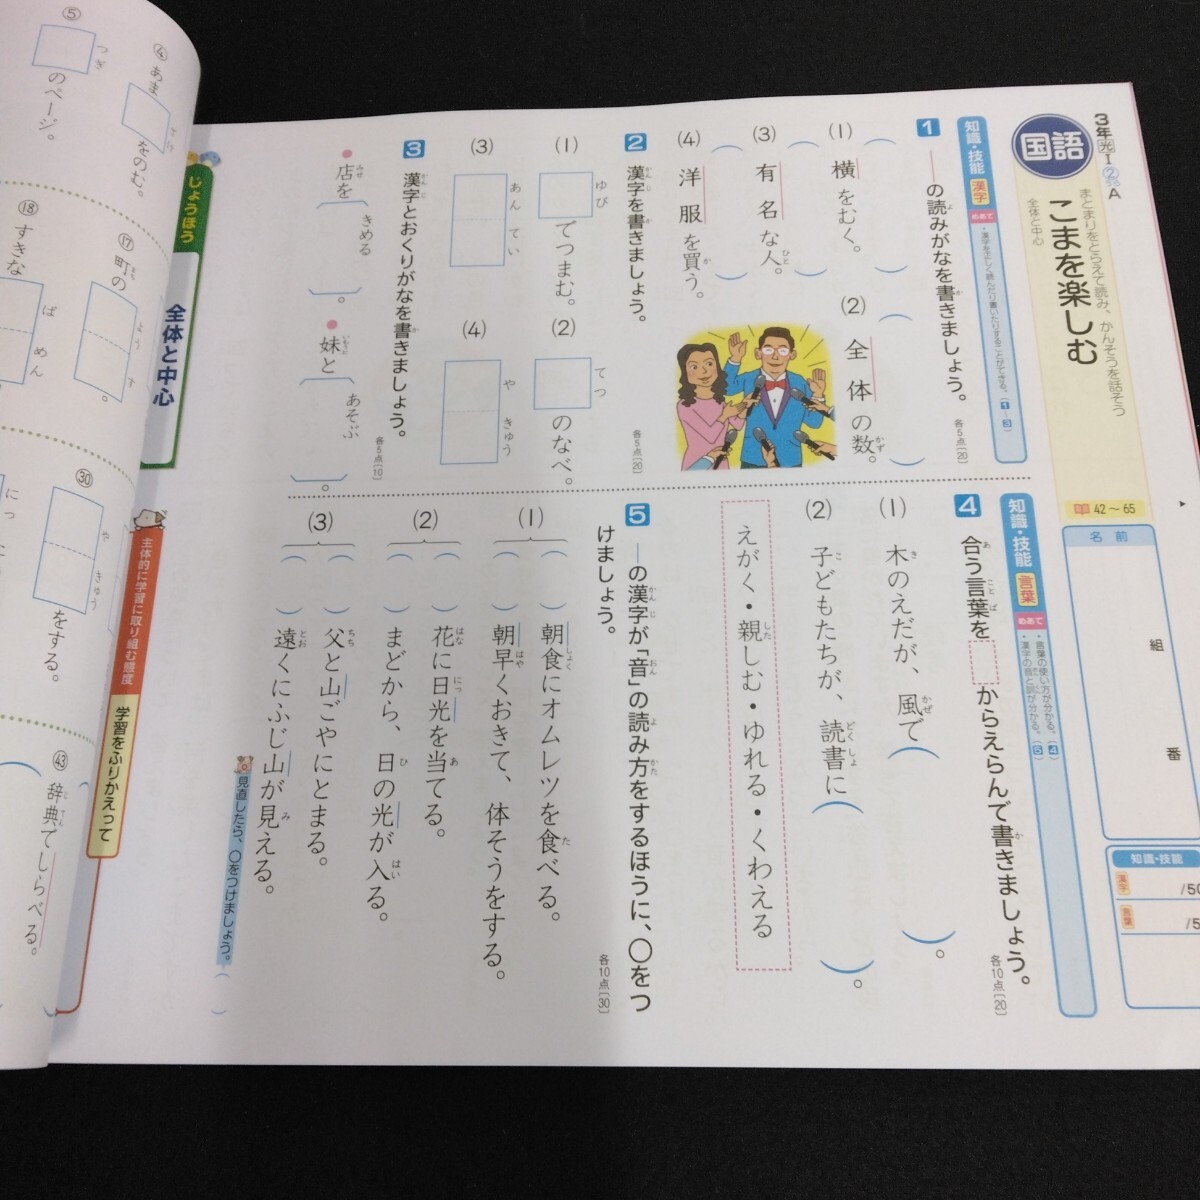 3年 光 Ⅰ ② A
国語
まとまりをとらえて読み、かんそうを話そう
こまを楽しむ
全体と中心
42～65
名前
組
番
知識・技能
漢字
/50
言葉
知識・技能 漢字
めあて
・漢字を正しく読んだり書いたりすることができる。(1～3)
1 ―の読みがなを書きましょう。
各5点[20]
(1) 横をむく。
(2) 全体の数。
(3) 有名な人。
(4) 洋服を買う。
2 漢字を書きましょう。
各5点[20]
(1) ゆび でつまむ。
(2) てつ のなべ。
(3) あんてい
(4) やきゅう
3 漢字とおくりがなを書きましょう。
各5点[10]
●店を きめる 。
●妹と あそぶ 。
知識・技能 言葉
めあて
・言葉の使い方が分かる。(4)
・漢字の音と訓が分かる。(5)
4 合う言葉を からえらんで書きましょう。
各10点[20]
(1) 木のえだが、風で( )。
(2) 子どもたちが、読書に( )。
えがく・親しむ・ゆれる・くわえる
5 ―の漢字が「音」の読み方をするほうに、○をつ
けましょう。
各10点[30]
(1)
( )朝食にオムレツを食べる。
( )朝早くおきて、体そうをする。
(2)
( )花に日光を当てる。
( )まどから、日の光が入る。
(3)
( )父と山ごやにとまる。
( )遠くにふじ山が見える。
見直したら、○をつけましょう。( )
じょうほう
全体と中心
主体的に学習に取り組む態度
学習をふりかえって
④ あま をのむ。
⑤ つぎ のページ。
⑰ 町の ようす 。
⑱ すきな ばめん
㉚ やきゅう をする。
にっ
㊸ 辞典でしらべる。